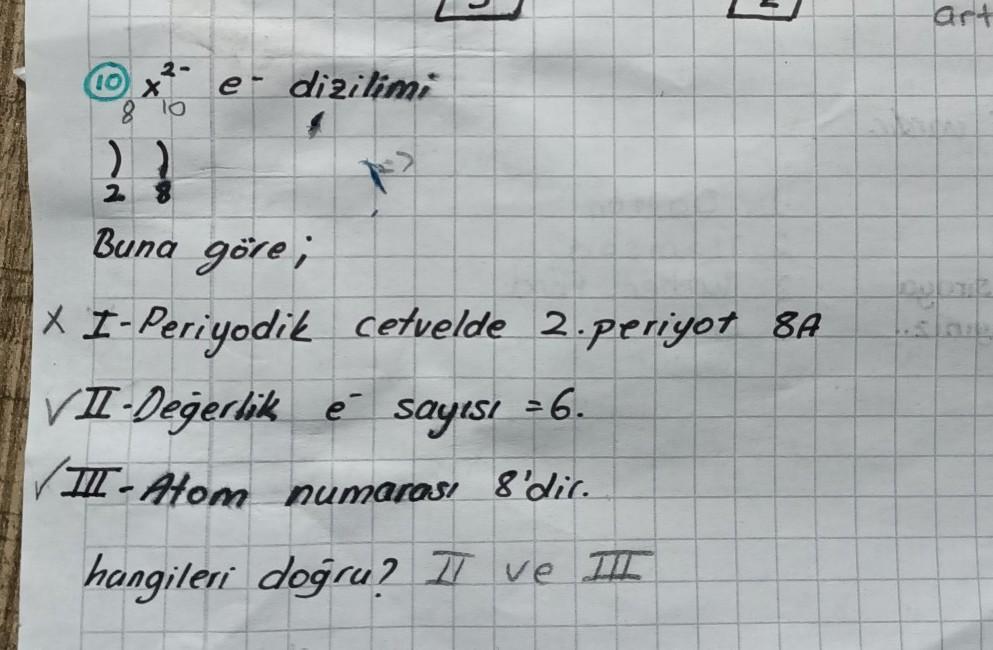 art
10 x²⁻ e⁻ dizilimi
8 10
) )
2 8
Buna göre;
X I-Periyodik cetvelde 2.periyot 8A
√ II-Değerlik e⁻ sayısı =6.
√ III-Atom numarası 8'dir.
hangileri doğru? II ve III